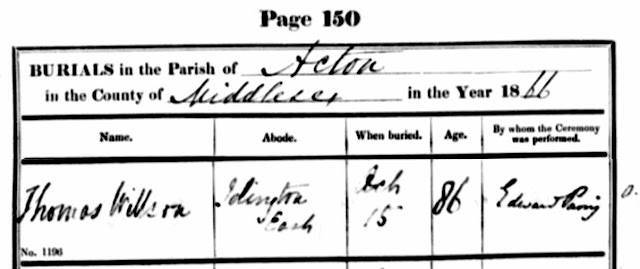 Page 150
BURIALS in the Parish of Acton
in the County of Middlesex in the Year 1866
Name. Abode. When buried. Age. By whom the Ceremony was performed.
Thomas Willson 15 86 Edward
No. 1196